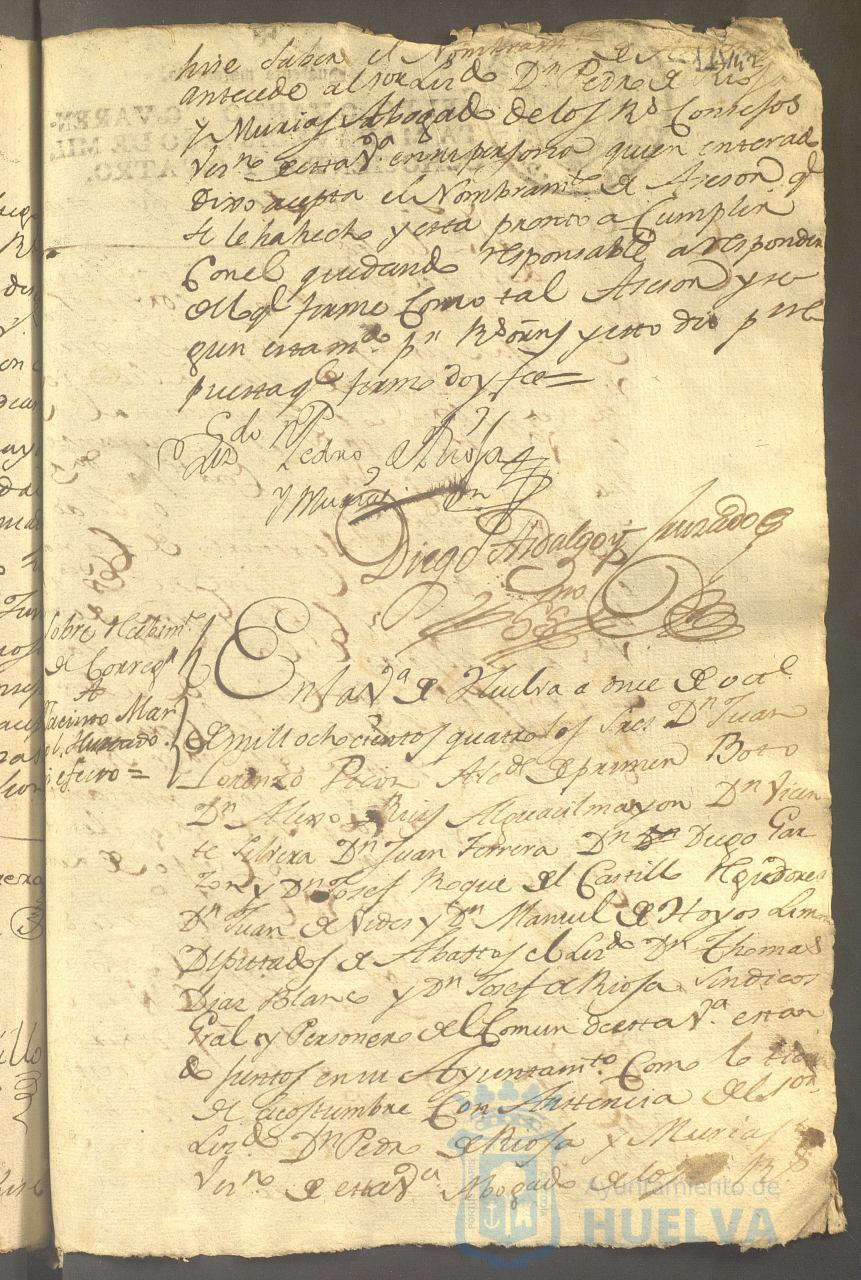 hise saber el Nombramto de
antecede al Sor Lizdo Dn Pedro de Riosa
y Murias Abogado de los Rs Consejos
Vesno de esta Va en su persona quien enterado
dixo acepta el Nombramto de Asesor qe
se le ha hecho y esta pronto a Cumplir
Con el quedando responsable a responder
como tal Asesor y se
gun esta mdo pr Rs orns y esto dio por
puesta qe firmo doy fee =
Lizdo Dn Pedro de Riosa
y Murias
Diego Hidalgo y Cruzado
Sno
Sobre Resibimto
de Corregr
A
Jacinto Mar
Hurtado
En la Va de Huelva a once de octe
de mill ochocientos quatro los Sres Dn Juan
Lorenzo Alcde de primer Boto
Dn Alexo Rioja Alguacil mayor Dn Vicen
te Dn Juan Ferrera Dn Diego Gar
zon y Dn Josef Roque del Castillo Regidores
Dn Juan de Vides y Dn Manuel de Hoyos Limon
Diputados de Abastos el Lizdo Dn Thomas
Dias Blanco y Dn Josef de Riosa Sindicos
Gral y Personero del Comun de esta Va estan
do juntos en su Ayuntamto Como lo tien
de Costumbre Con Asistencia del Sor
Lizdo Dn Pedro de Riosa y Murias
Vesno de esta Va Abogado de los Rs
Ayuntamiento de
HUELVA